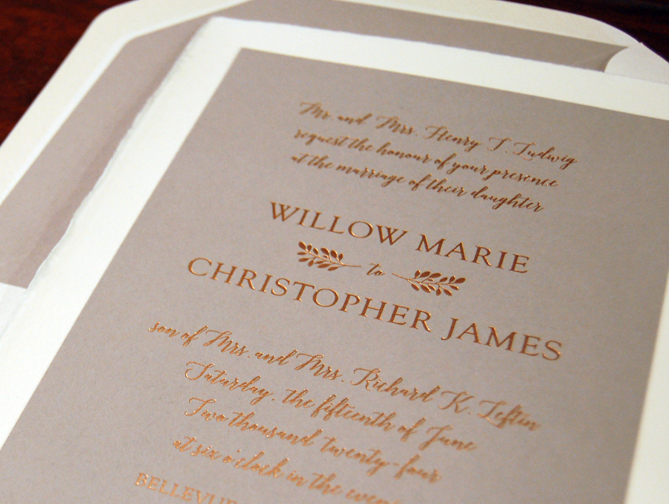 Mr. and Mrs. Henry T. Ludwig
request the honour of your presence
at the marriage of their daughter
WILLOW MARIE
to
CHRISTOPHER JAMES
son of Mrs. and Mrs. Richard K. Teftin
Saturday, the fifteenth of June
Two thousand twenty-four
at six o'clock in the evening
BELLEVUE